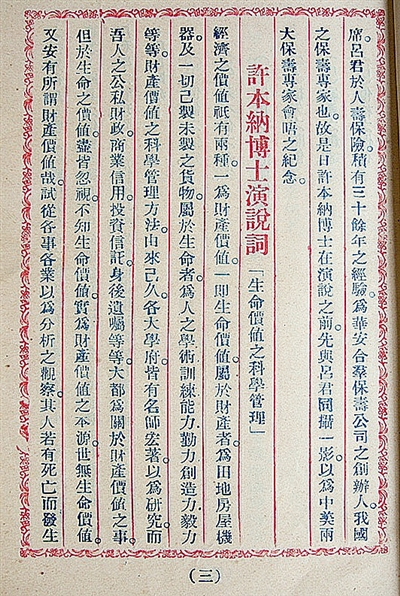 席。呂君於人壽保險。積有三十餘年之經驗。為華安合羣保壽公司之創辦人。我國
之保壽專家也。故是日許本納博士在演說之前。先與呂君同攝一影。以為中美兩
大保壽專家會唔之紀念。
許本納博士演說詞「生命價值之科學管理」
經濟之價值祇有兩種。一為財產價值。一即生命價值。屬於財產者。為田地房屋機
器及一切已製未製之貨物。屬於生命者。為人之學術訓練能力勤力創造力毅力
等等。財產價值之科學管理方法。由來已久。各大學府。皆有名師宏著。以為研究。而
吾人之公私財政。商業信用。投資信託。身後遺囑等等。大都為關於財產價值之事。
但於生命之價值。盡皆忽視。不知生命價值。實為財產價值之本源。世無生命價值。
又安有所謂財產價值哉。試從各事各業以為分析之觀察。其人若有死亡而發生
(三)